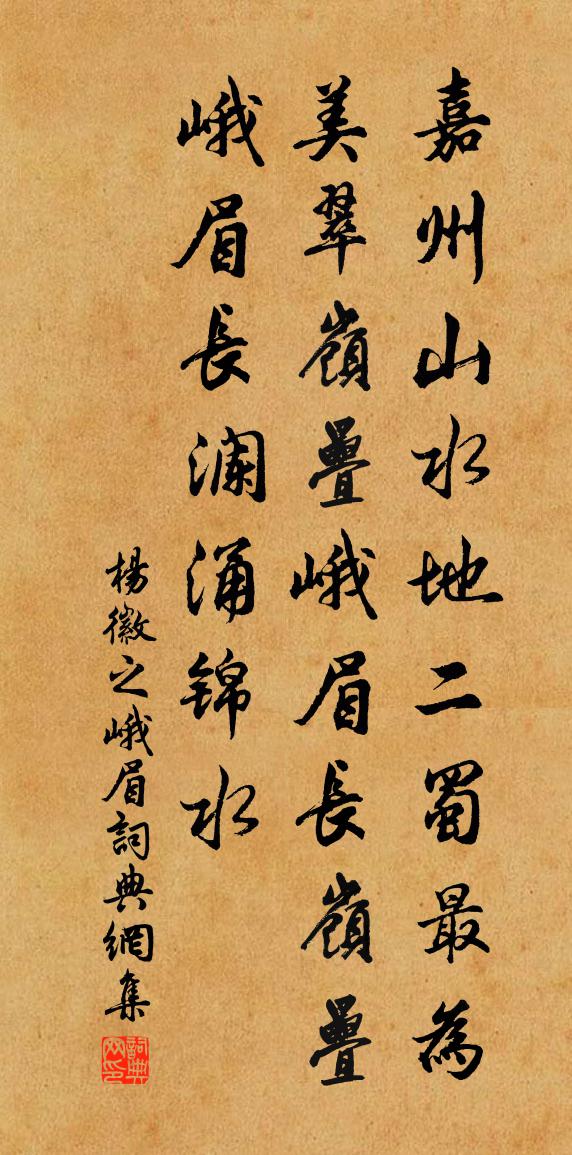 嘉州山水地二蜀最為
美翠嶺疊峨眉長嶺疊
峨眉長瀾涌錦水
楊徽之峨眉詞典網集
詞典網印